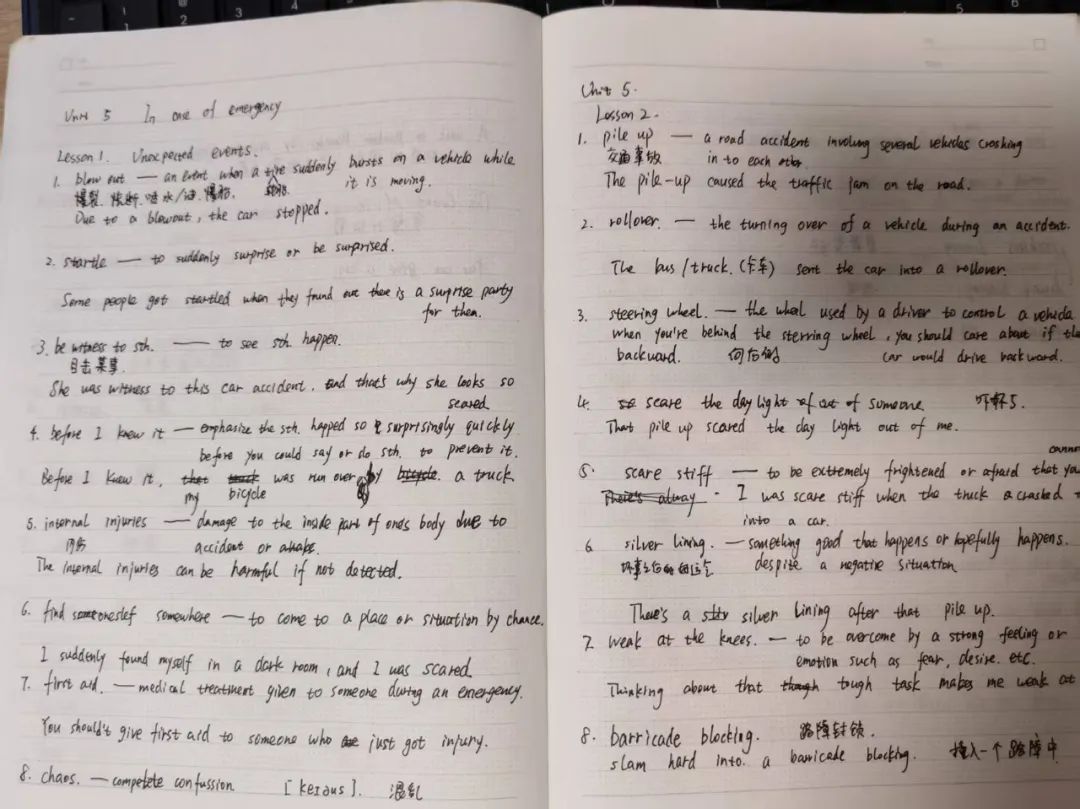 Unit 5 In case of emergency
Lesson 1. Unexpected events.
1. blow out — an event when a tire suddenly bursts on a vehicle while
爆裂. 喷水/油. 爆胎. it is moving.
Due to a blowout, the car stopped.
2. startle — to suddenly surprise or be surprised.
Some people got startled when they found out there is a surprise party
for them.
3. be witness to sth. — to see sth. happen.
目击某事.
She was witness to this car accident. and that's why she looks so
scared
4. before I knew it — emphasize the sth. happed so surprisingly quickly
before you could say or do sth. to prevent it.
Before I knew it, my bicycle was run over by a truck
5. internal injuries — damage to the inside part of one's body due to
内伤 accident or
The internal injuries can be harmful if not detected.
6. find someoneslef somewhere — to come to a place or situation by chance.
I suddenly found myself in a dark room, and I was scared.
7. first aid. — medical treatment given to someone during an emergency.
You should't give first aid to someone who just got injury.
8. chaos. — compelete confussion. 混乱
Unit 5.
Lesson 2.
1. pile up — a road accident involving several vehicles crashing
交通事故 in to each other.
The pile-up caused the traffic jam on the road.
2. rollover. — the turning over of a vehicle during an accident.
The bus / truck. (卡车) sent the car into a rollover.
3. steering wheel. — the wheel used by a driver to control a vehicle
when you're behind the sterring wheel, you should care about if the
backward. 向后的 car would drive backward.
4. scare the day light out of someone. 吓坏了.
That pile up scared the day light out of me.
5. scare stiff — to be extremely frightened or afraid that you
cannot
I was scare stiff when the truck crashed
into a car.
6. silver lining. — something good that happens or hopefully happens.
despite a negative situation
There's a silver lining after that pile up.
7. weak at the knees. — to be overcome by a strong feeling or
emotion such as fear, desire. etc.
Thinking about that tough task makes me weak at
8. barricade blocking. 路障封锁.
slam hard into. a barricade blocking. 撞入一个路障中